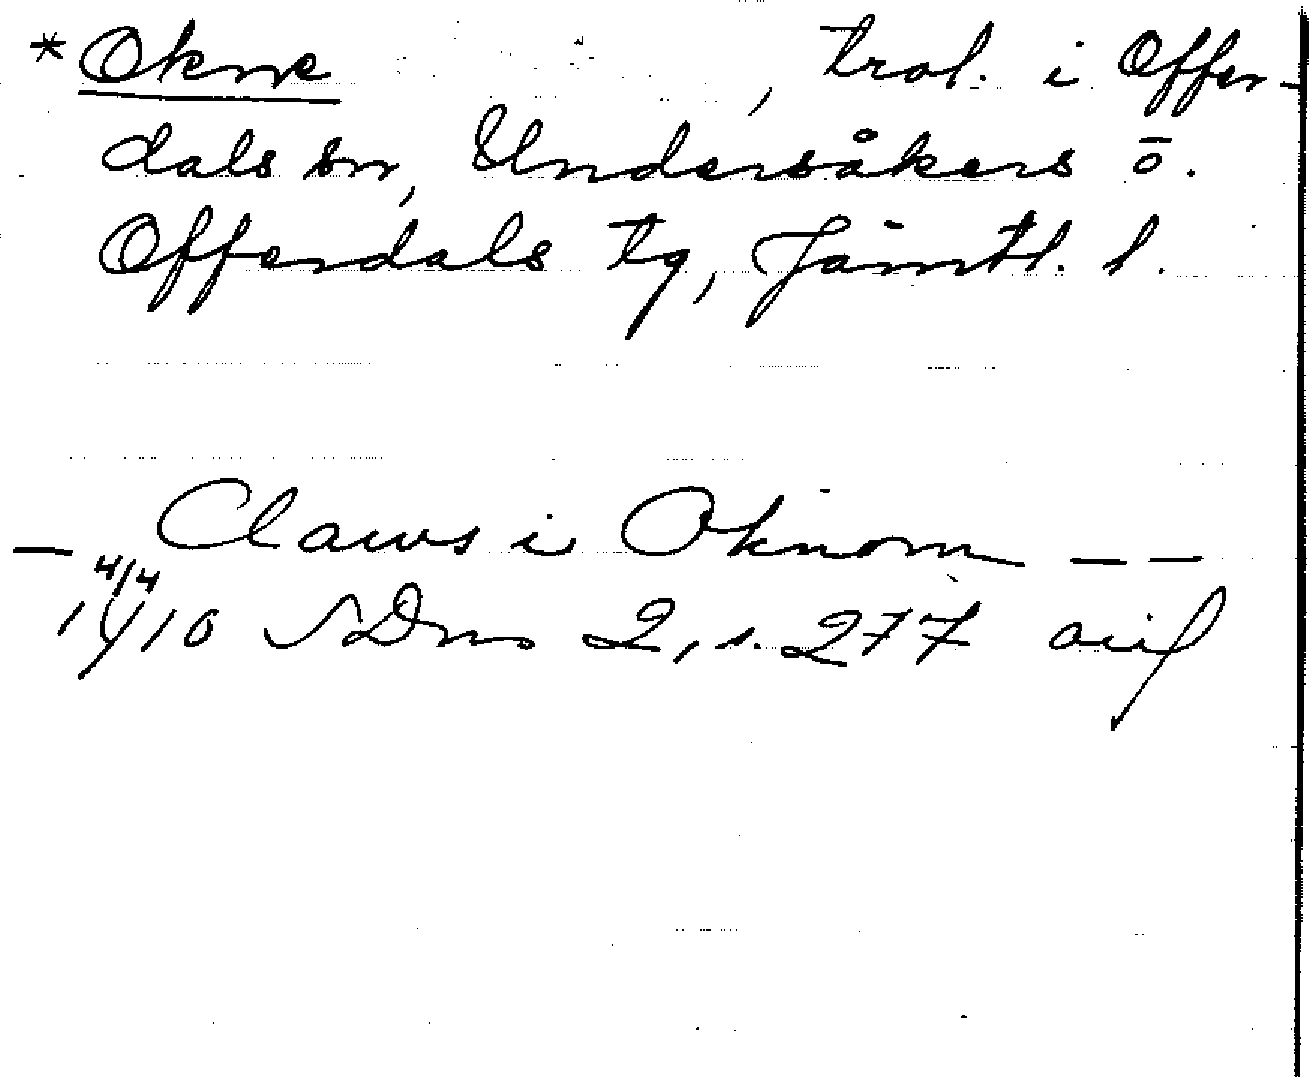 *Okne , trol. i Offer-
dals sn, Undersåkers ō.
Offerdals tg, Jämtl. l.
— Claws i Oknom — —
4/4
1410 SDns 2, s. 277 avil